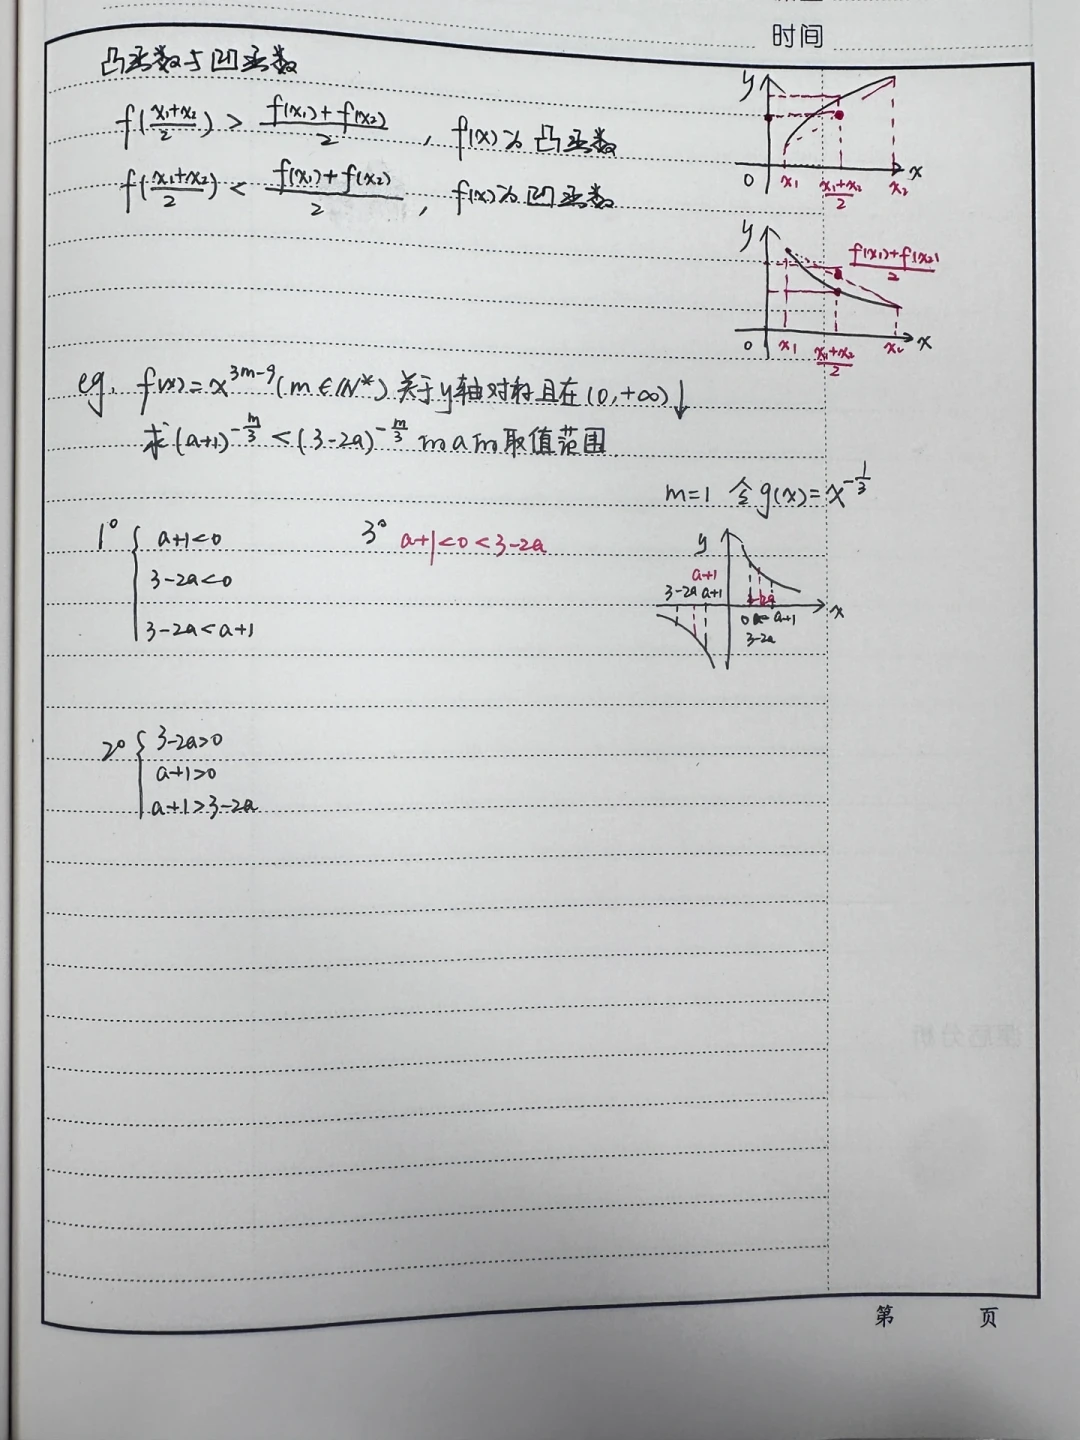 时间
凸函数与凹函数
f(\frac{x₁+x₂}{2}) > \frac{f(x₁)+f(x₂)}{2}, f(x)为凸函数
f(\frac{x₁+x₂}{2}) < \frac{f(x₁)+f(x₂)}{2}, f(x)为凹函数
y
0 x₁ \frac{x₁+x₂}{2} x₂ x
y
\frac{f(x₁)+f(x₂)}{2}
0 x₁ \frac{x₁+x₂}{2} x₂ x
eg. f(x)=x^{3m-9}(m∈N*)关于y轴对称且在(0,+∞)↓
求(a+1)^{-\frac{m}{3}}<(3-2a)^{-\frac{m}{3}} 的a的取值范围
m=1 令g(x)=x^{-\frac{1}{3}}
1° { a+1<0
3-2a<0
3-2a<a+1
3° a+1<0<3-2a
y
a+1
3-2a a+1
x
0 a+1
3-2a
2° { 3-2a>0
a+1>0
a+1>3-2a
第 页